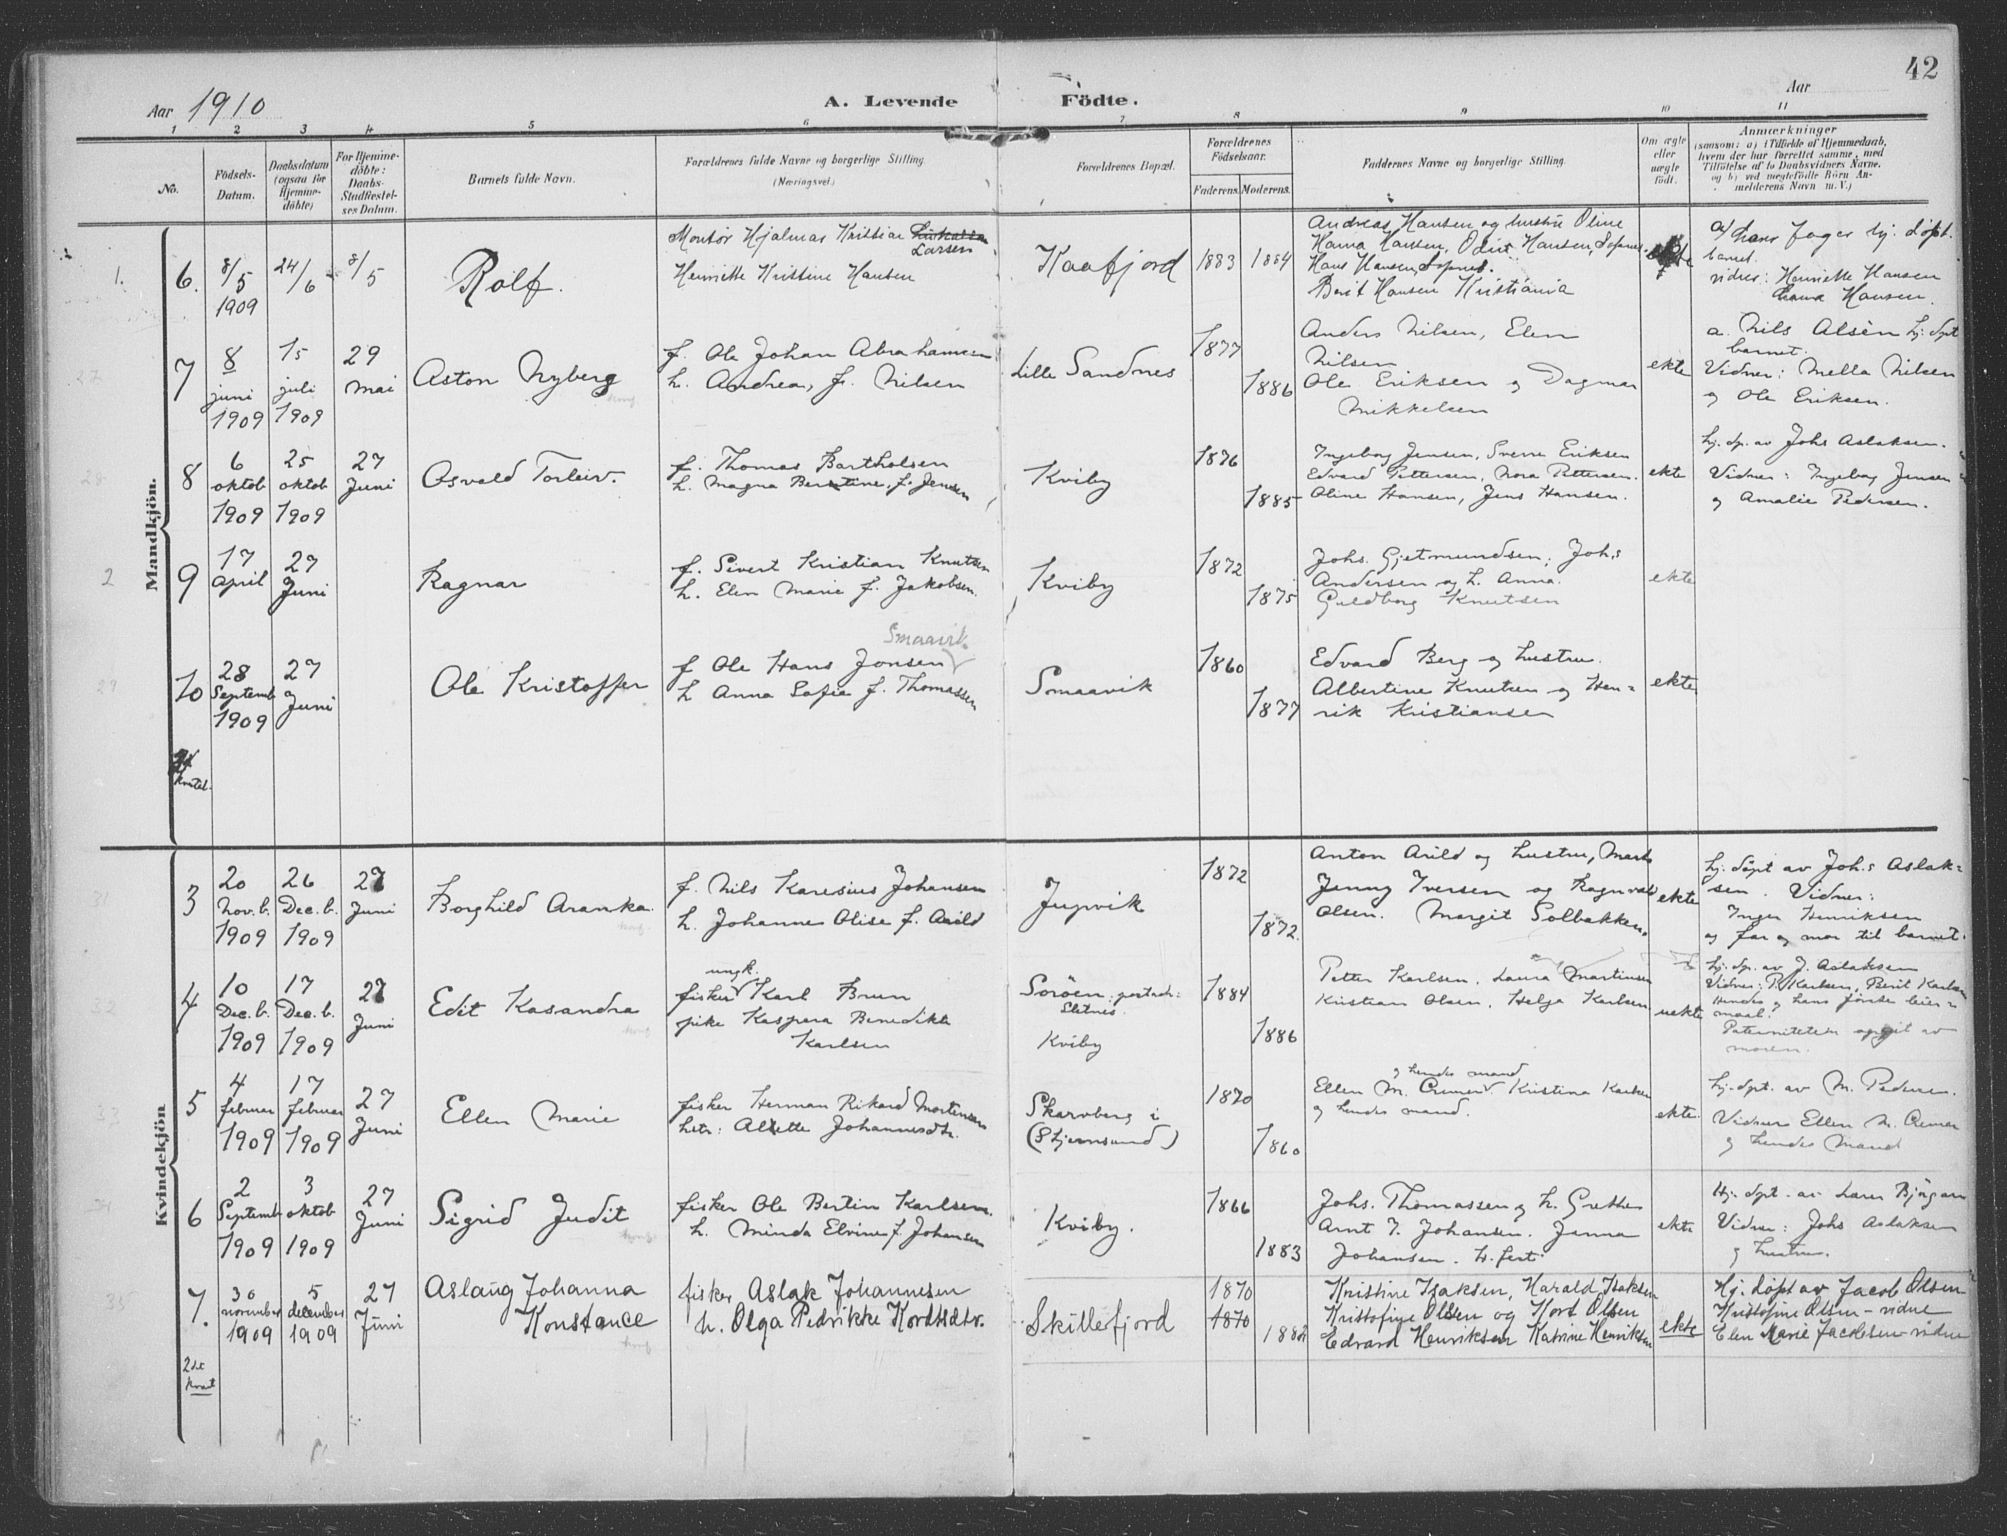 42
Aar 1910
A. Levende Födte.
Aar
1 2 3 4 5 6 7 8 9 10 11
No.
Födsels-
Datum.
Daabsdatum
(ogsaa for
Hjemme-
döbte)
For Hjemme-
döbte:
Daabs-
Stadfæstel-
ses Datum.
Barnets fulde Navn.
Forældrenes fulde Navne og borgerlige Stilling.
(Næringsvei.)
Forældrenes Bopæl.
Forældrenes
Födselsaar.
Faderens. Moderens.
Faddernes Navne og borgerlige Stilling.
Om ægte
eller
uægte
födt.
Anmærkninger
(saasom: a) i Tilfælde af Hjemmedaab,
hvem der har forrettet samme, med
Tilföielse af to Daabsvidners Navne,
og b) ved uægtefödte Börn An-
melderens Navn m. V.)
Mandkjön.
1.
6.
8/5
1909
24/6
8/5
Rolf.
Montör Hjalmar Kristian
Larsen
Henriette Kristine Hansen
Kaafjord
1883 1884
Andreas Hansen og hustru Oline
Hanna Hansen, Odin Hansen, Sopnes.
Hans Hansen, Sopnes.
Berit Hansen Kristiania
ekte
a/ Lars Fager hj. döpt.
barnet.
vidner: Henriette Hansen
Hanna Hansen.
27
7
8
juni
1909
15
juli
1909
29
mai
Aston Nyberg
f. Ole Johan Abrahamsen
h. Andrea, f. Nilsen
Lille Sandnes
1877
1886
Anders Nilsen, Elen
Nilsen
Ole Eriksen og Dagmar
Mikkelsen
ekte
a. Nils Alsèn hj. dpt
barnet.
Vidner: Mella Nilsen
og Ole Eriksen.
28
8
6
oktob
1909
25
oktob
1909
27
Juni
Osvald Torleiv.
f. Thomas Bartholsen
h. Magna Bentine, f. Jensen
Kviby
1876
1885
Ingeborg Jensen, Sverre Eriksen
Edvard Pettersen, Nora Pettersen.
Oline Hansen, Jens Hansen.
ekte
hj. dp. av Johs Aslaksen.
Vidner: Ingeborg Jensen
og Amalie Pedersen.
2
9
17
April
27
Juni
Ragnar
f. Sivert Kristian Knutsen
h. Elen Marie f. Jakobsen.
Kviby
1872
1875
Johs. Gjetmundsen; Johs
Andersen og h. Anna.
Guldborg Knutsen
ekte
29
10
28
Septemb
1909
27
Juni
Ole Kristoffer
Smaavik
f Ole Hans Jonsen
h Anna Sofie f. Thomassen
Smaavik
1860
1877
Edvard Berg og hustru.
Albertine Knutsen og Hen=
rik Kristiansen
ekte
Kvartal.
Kvindekjön
31
3
20
Nov.b.
1909
26
Dec.b.
1909
27
Juni
Borghild Aranka.
f. Nils Karesius Johansen
h. Johannes Olise f. Arild
Jupvik
1872
1872.
Anton Arild og hustru, Marte
Jenny Iversen og Ragnvald
Olsen. Margit Solbakken.
ekte
hj. döpt av Johs Aslak=
sen. Vidner:
Inger Henriksen
og far og mor til barnet.
32
4
10
Dec.b.
1909
17
Dec.b.
1909
27
Juni
Edit Kasandra
ungk.
fisker Karl Brun
pike Kaspara Benedikte
Karlsen
Soröen: postadr:
Sletnes.
Kviby
1884
1886
Petter Karlsen, Laura Martinsen
Kristian Olsen, Helga Karlsen
uekte
hj. dp. av J. Aslaksen
Vidner: P. Karlsen, Berit Karlsen
Hendes og hans förste leier=
maal.
Paterniteten opgit av
moren.
33
5
4
februar
1909
17
februar
1909
27
Juni
Ellen Marie
fisker Herman Rikard Mortensen
hstr: Alette Johannesdtr.
Skarvberg i
(Stjernsund)
1870
1860
og hendes mand
Ellen M. Cremer. Kristina Karlsen
og hendes mand.
ekte.
hj. dpt. av M. Pedersen.
Vidner Ellen M. Cremer
og hendes mand
34
6
2
Septemb
1909
3
oktob
1909
27
Juni
Sigrid Judit
fisker Ole Bertin Karlsen.
h. Minda Elvine f. Johansen
Kviby.
1866
1883
Johs. Thomassen og h. Grethe
Arnt J. Johansen. Jenna
Johansen. H. fert.
ekte
Hj. dpt. av Lars Björgan
Vidner: Johs Aslaksen
og hustru.
35
7.
30
november
1909
5
december
1909
27
Juni
Aslaug Johanna
Konstance
fisker Aslak Johannesen
h. Olga Pedrikke Kordtsdtr.
Skillefjord
1870
1870
1882
Kristine Isaksen, Harald Isaksen
Kristofine Olsen og Kort Olsen
Edvard Henriksen Katrine Henriksen
ekte
Hj. döpt av Jacob Olsen
Kristofine Olsen - vidne
Elen Marie Jacobsen - vidne
2det
Kvart